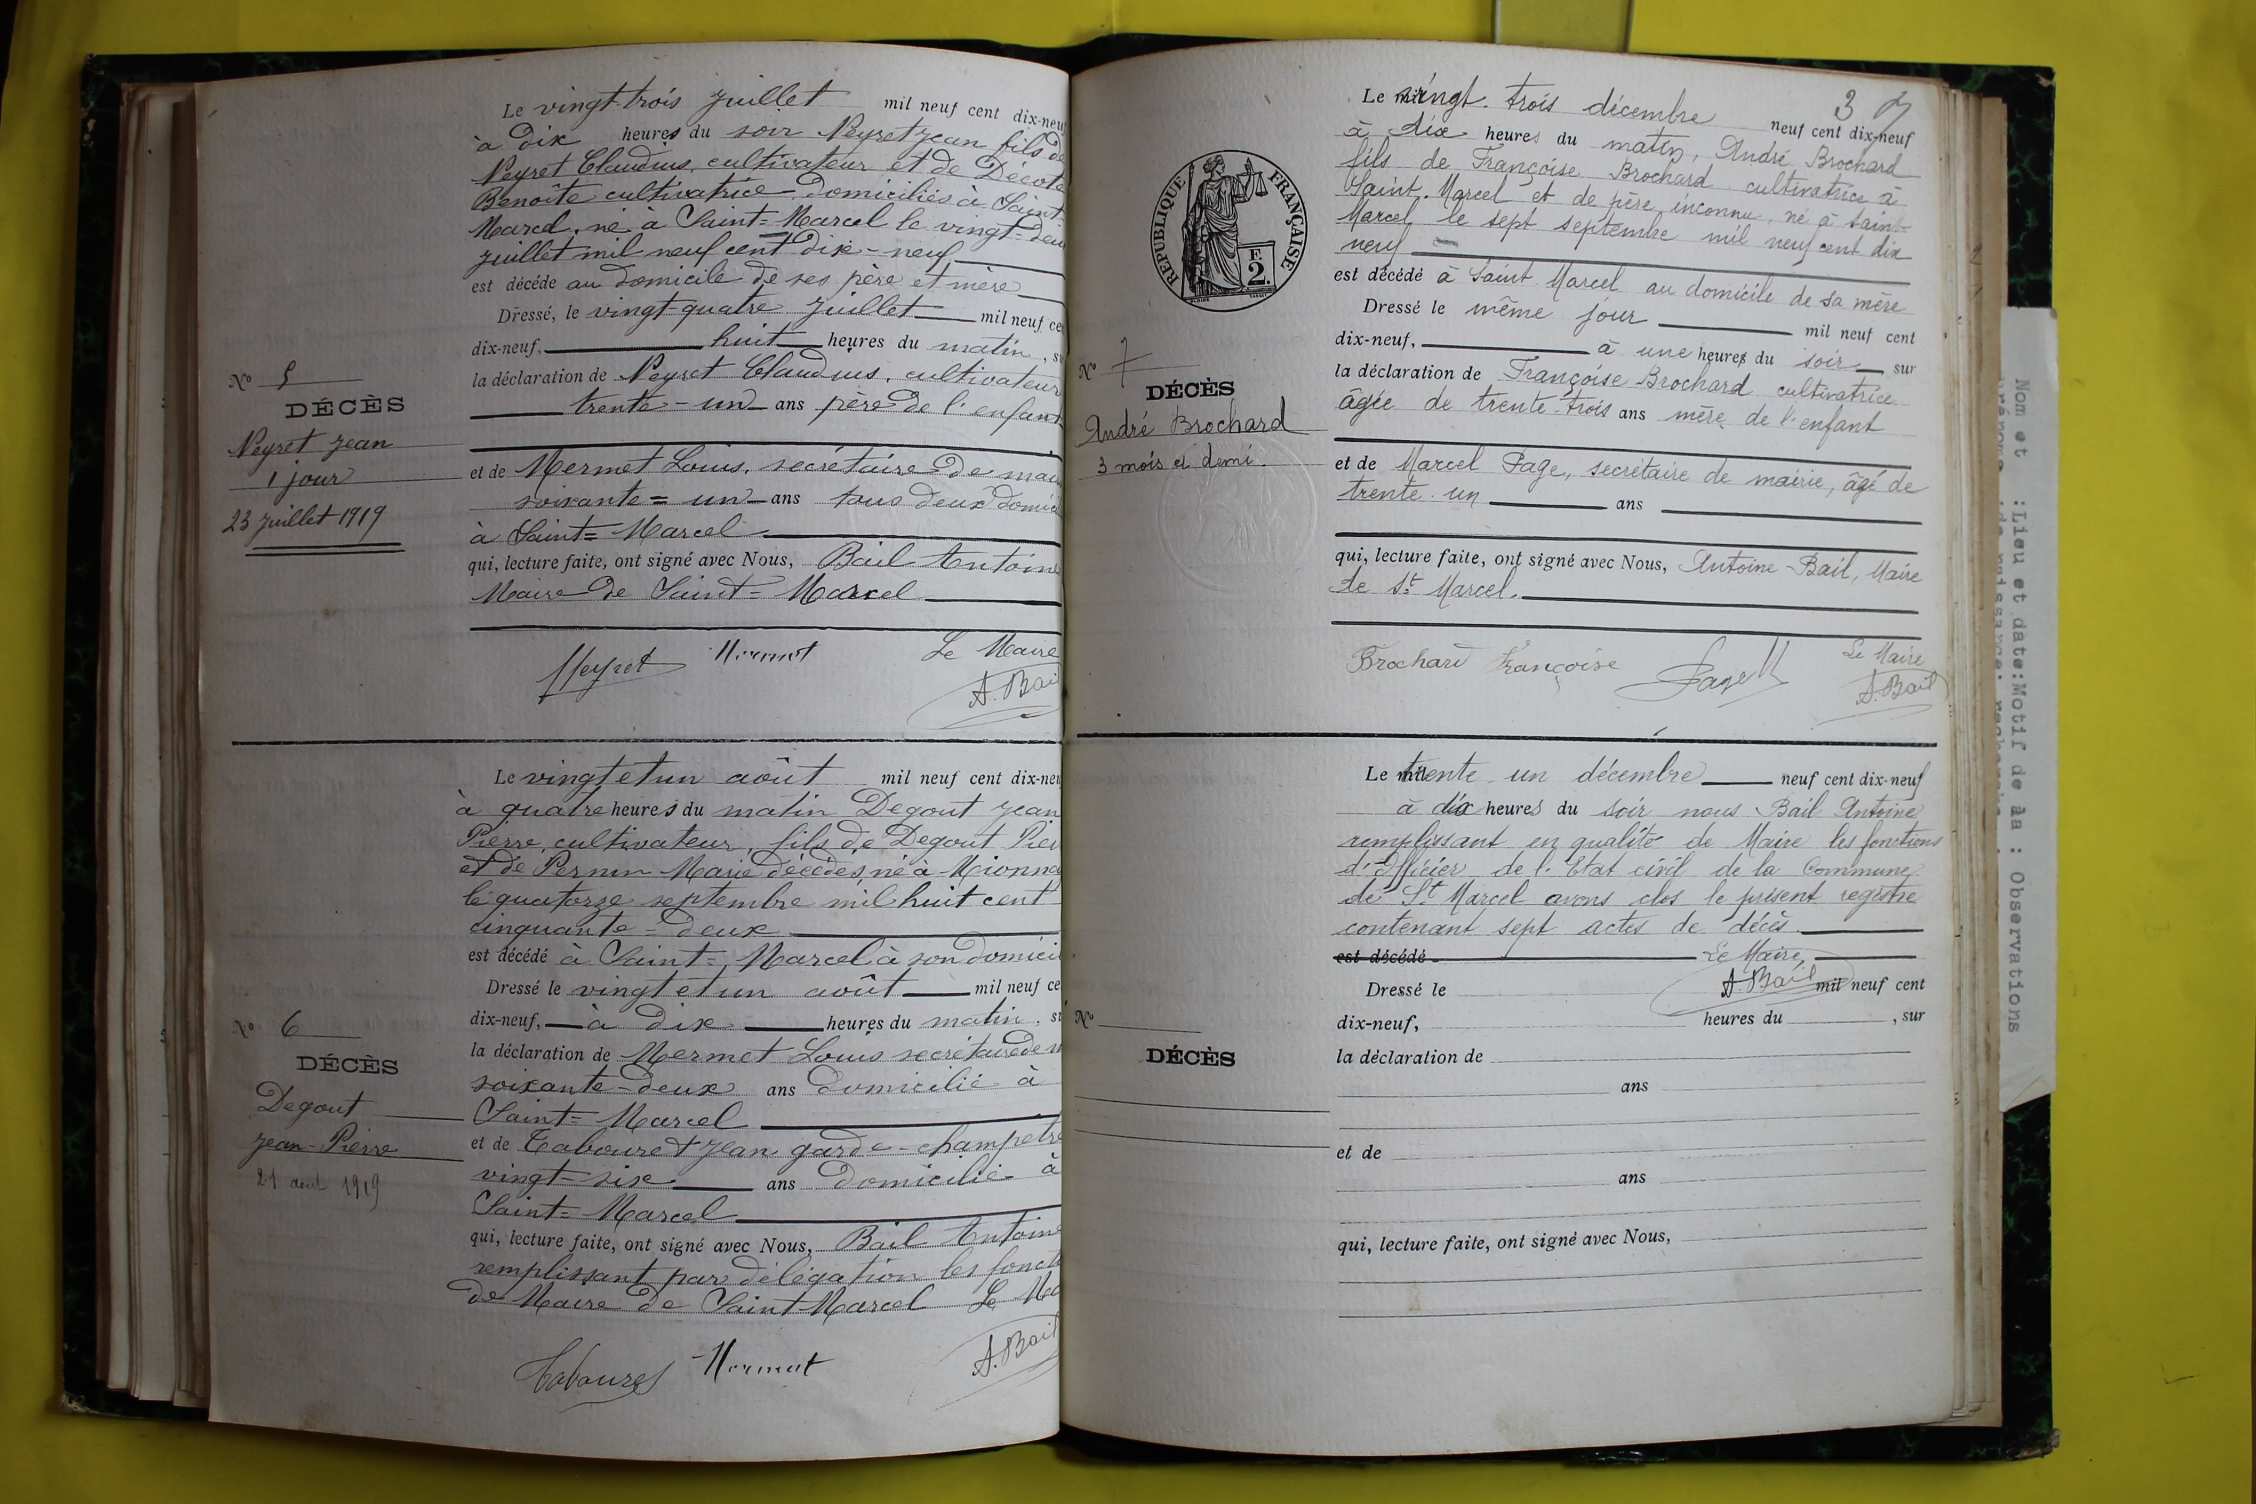 Le vingt-trois juillet mil neuf cent dix-neuf
à dix heures du soir Neyret Jean fils de
Neyret Claudius, cultivateur et de Décote
Benoîte cultivatrice domiciliés à Saint-
Marcel, né à Saint=Marcel le vingt=deux
juillet mil neuf cent dix-neuf
est décédé au domicile de ses père et mère
Dressé, le vingt-quatre juillet mil neuf ce
dix-neuf, huit heures du matin, su
la déclaration de Neyret Claudius, cultivateur
trente-un ans père de l'enfant
et de Mermet Louis, secrétaire de mai
soixante=un ans tous deux domici
à Saint=Marcel
qui, lecture faite, ont signé avec Nous, Bail Antoine
Maire de Saint=Marcel
Neyret Mermet Le Maire
A. Bail
N° 5
DÉCÈS
Neyret Jean
1 jour
23 juillet 1919
Le vingt et un août mil neuf cent dix-neu
à quatre heures du matin Degout Jean
Pierre, cultivateur, fils de Degout Pier
et de Pernin Marie décédés, né à Mionna
le quatorze septembre mil huit cent
cinquante=deux
est décédé à Saint=Marcel à son domicil
Dressé le vingt et un août mil neuf ce
dix-neuf, à dix heures du matin, su
la déclaration de Mermet Louis secrétaire de m
soixante-deux ans domicilié à
Saint=Marcel
et de Tabouret Jean garde-champetre
vingt=six ans domicilié à
Saint=Marcel
qui, lecture faite, ont signé avec Nous, Bail Antoine
remplissant par délégation les foncti
de Maire de Saint-Marcel Le Ma
Tabouret Mermet A. Bail
N° 6
DÉCÈS
Degout
Jean-Pierre
21 aout 1919
3
RÉPUBLIQUE FRANÇAISE
F. 2.
Le mil vingt-trois décembre neuf cent dix-neuf
à dix heures du matin, André Brochard
fils de Françoise Brochard cultivatrice à
Saint-Marcel et de père inconnu, né à Saint-
Marcel le sept septembre mil neuf cent dix
neuf
est décédé à Saint Marcel au domicile de sa mère
Dressé le même jour mil neuf cent
dix-neuf, à une heures du soir sur
la déclaration de Françoise Brochard cultivatrice
âgée de trente-trois ans mère de l'enfant
et de Marcel Page, secrétaire de mairie, âgé de
trente-un ans
qui, lecture faite, ont signé avec Nous, Antoine Bail, Maire
de St Marcel.
Brochard Françoise Page Le Maire
A. Bail
N° 7
DÉCÈS
André Brochard
3 mois et demi.
Le mil trente un décembre neuf cent dix-neuf
à dix heures du soir nous Bail Antoine
remplissant en qualité de Maire les fonctions
d'Officier de l'Etat civil de la Commune
de St Marcel avons clos le présent registre
contenant sept actes de décès.
est décédé Le Maire,
Dressé le A. Bail mil neuf cent
dix-neuf, heures du , sur
la déclaration de
ans
et de
ans
qui, lecture faite, ont signé avec Nous,
N°
DÉCÈS
Nom et :Lieu et date:Motif de la : Observations